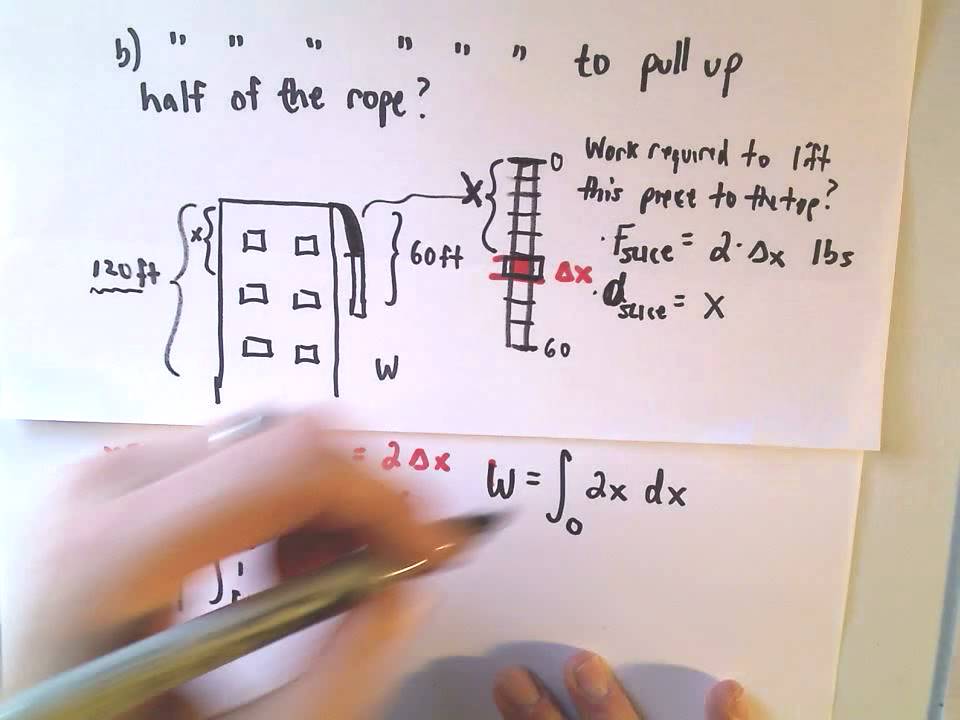 b) " " " " " " to pull up
half of the rope?
Work required to lift
this piece to the top?
· Fslice = 2 · Δx lbs
· dslice = x
x
0
x
120ft
60ft
Δx
60
W
= 2Δx
W = ∫0 2x dx